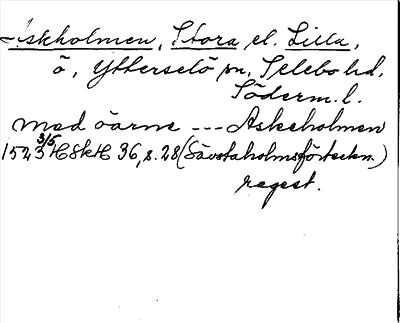 Askholmen, Stora el. Lilla,
ö, Ytterselö sn, Selebo hd,
Söderm. l.
med öarne --- Askeholmen
1543 3/5 HSkH 36, s. 28 (Sävstaholmsförteckn.)
regest.